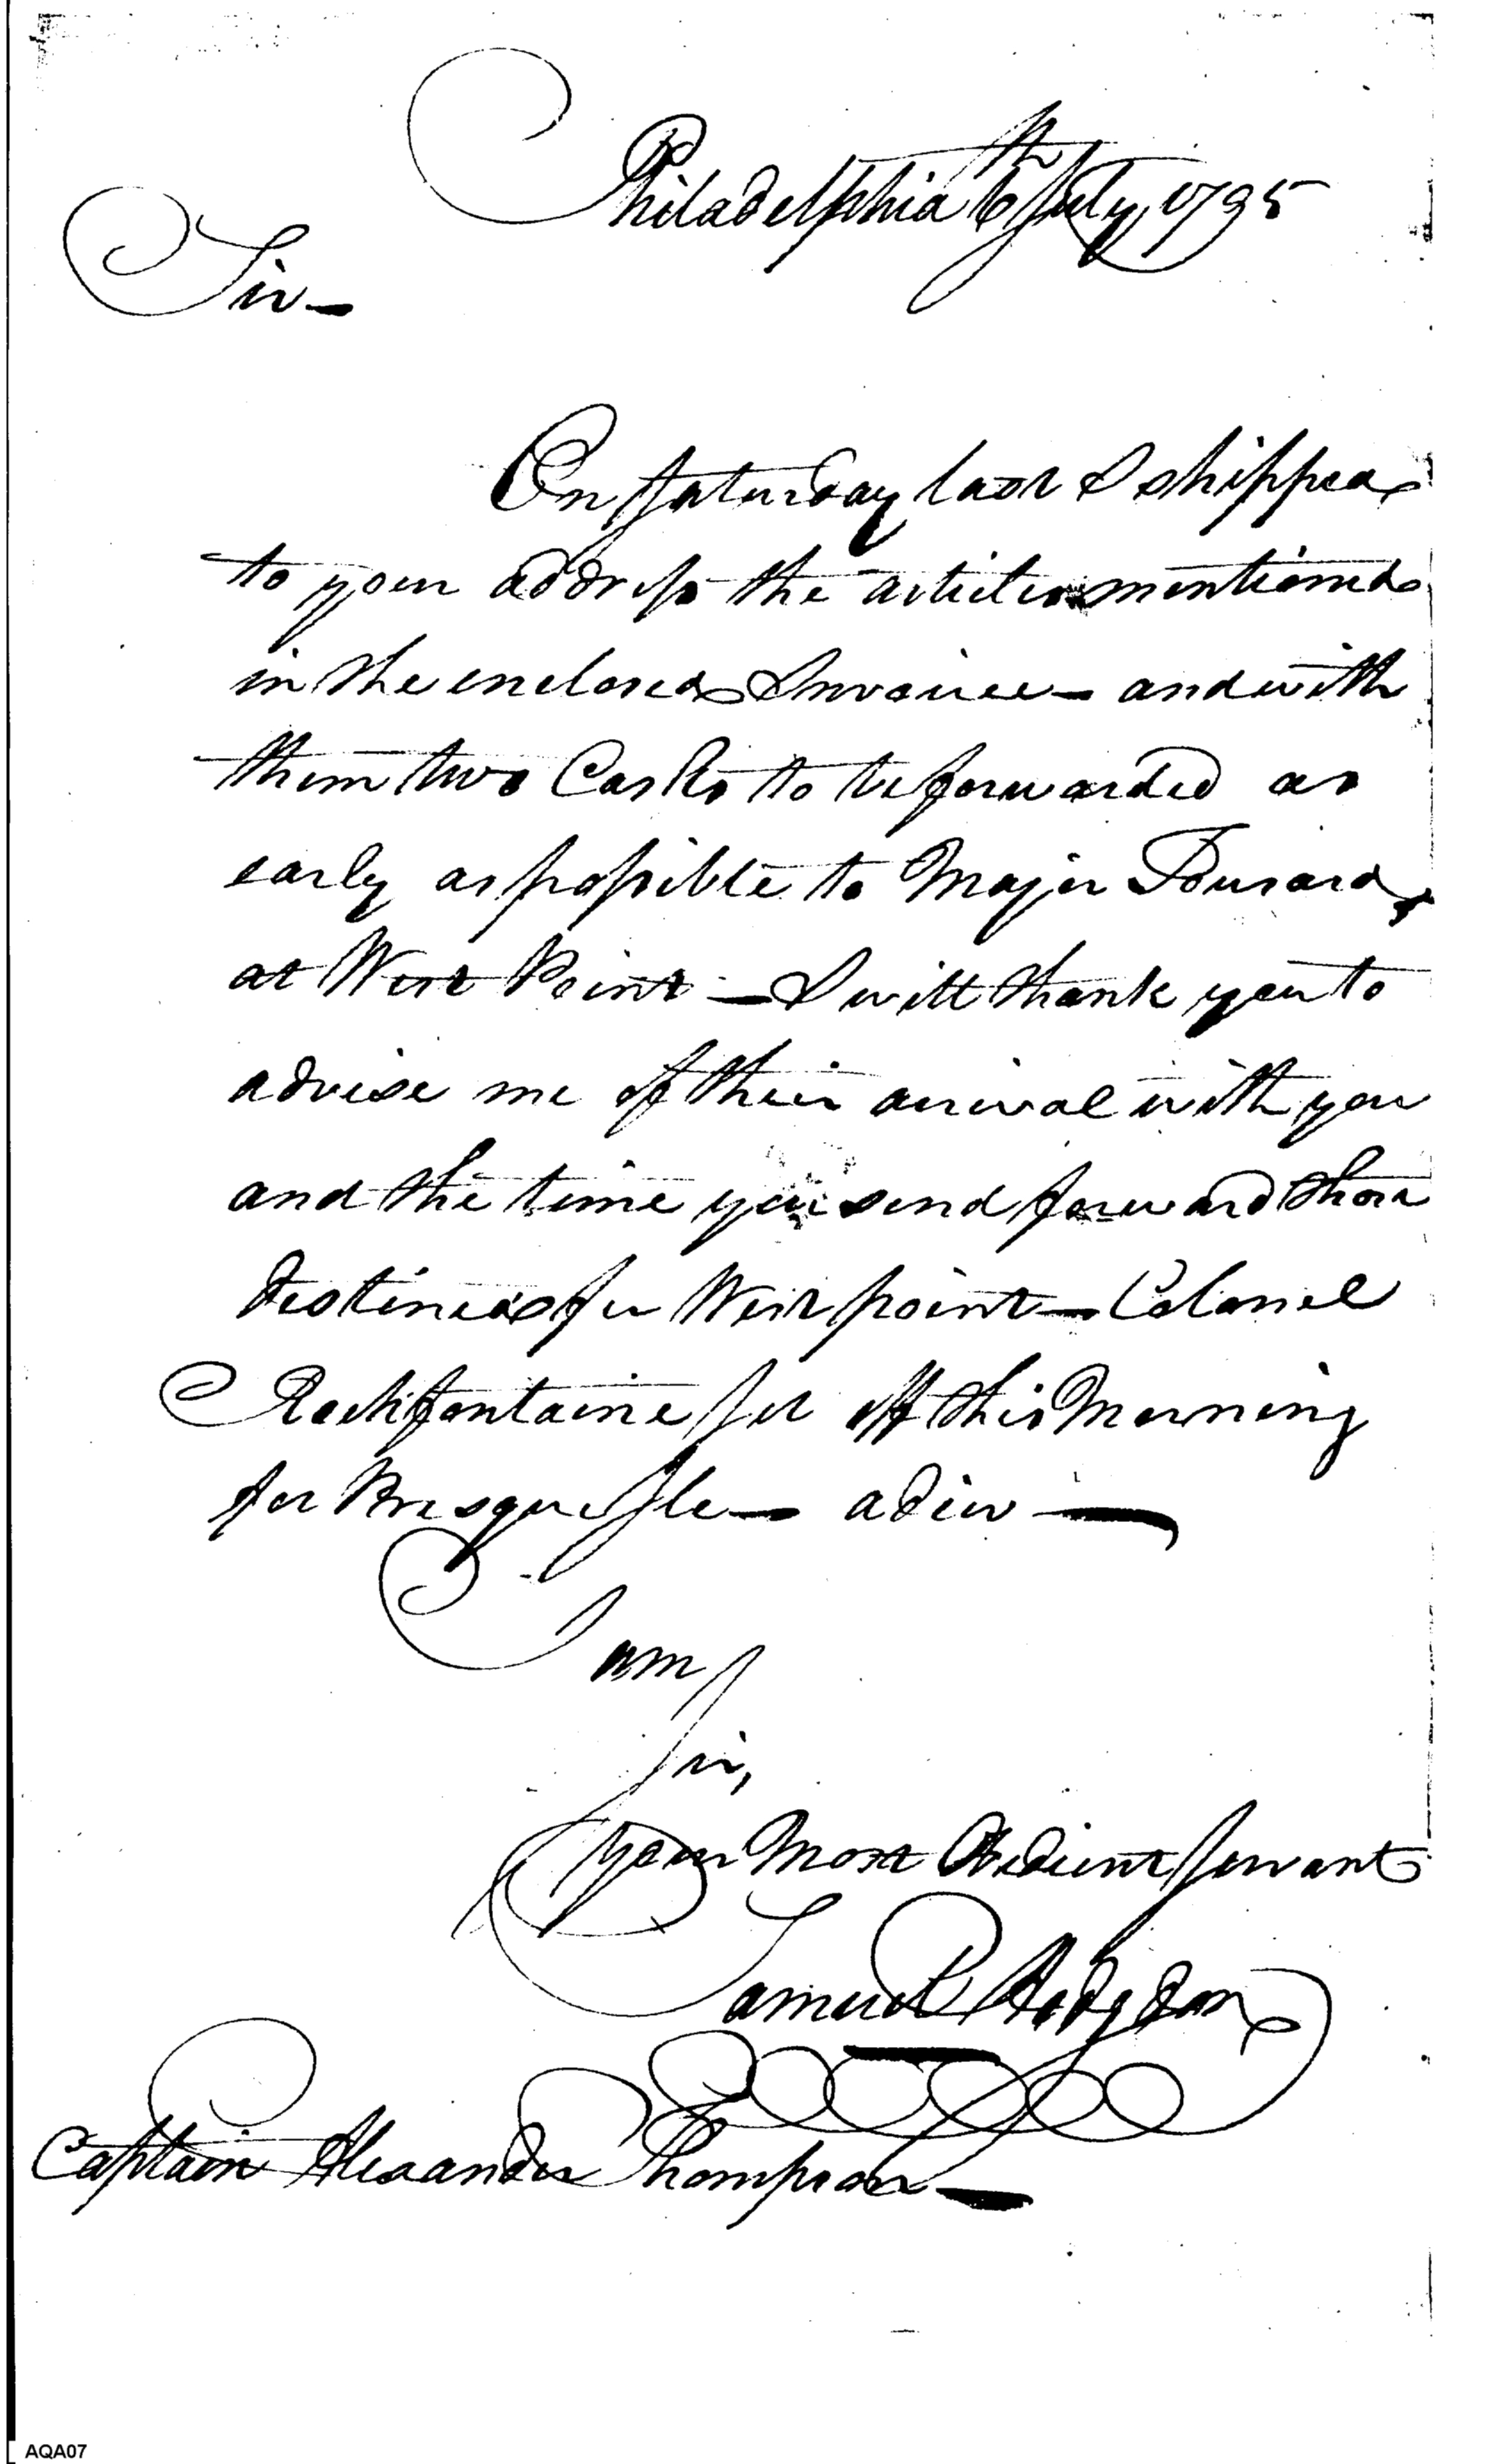 Philadelphia 6th July, 1795
Sir —
On Saturday last I shipped
to your address the articles mentioned
in the enclosed Invoice — and with
them two Casks to be forwarded as
early as possible to Major Tousard
at West Point — I will thank you to
advise me of their arrival with you
and the time you send forward those
destined for West point — Colonel
Rochfontaine set off this Morning
for Presque Isle — adieu —
I am
Sir,
Your Most Obedient Servant
Samuel Hodgdon
Captain Alexander Thompson —
AQA07